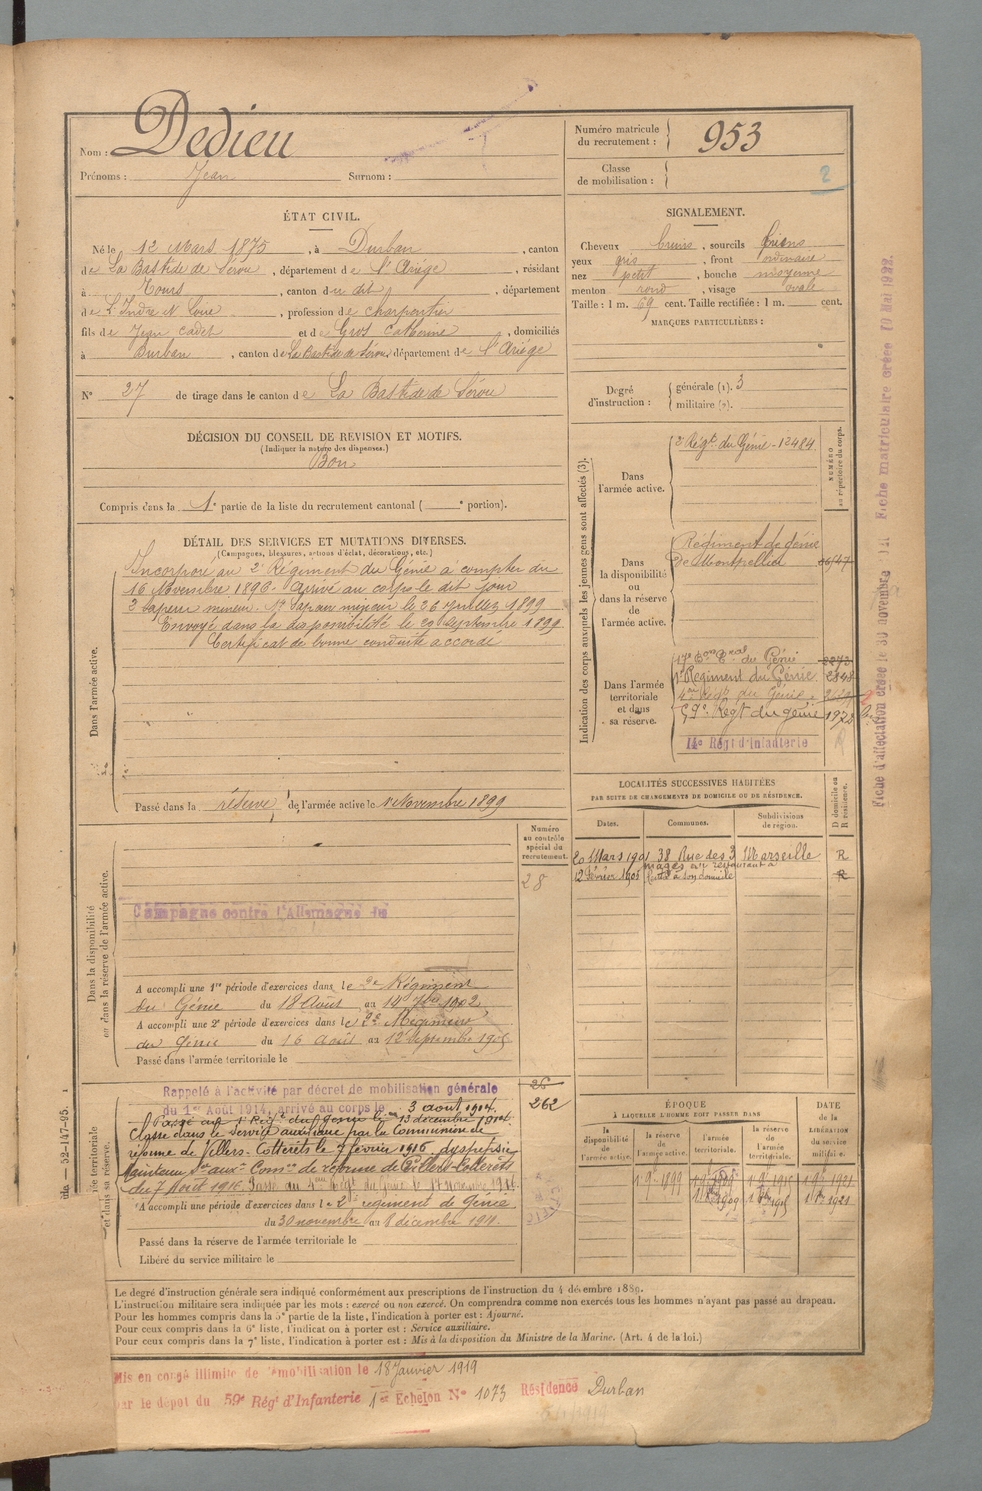 Nom : Dedieu
Prénoms : Jean Surnom :
Numéro matricule du recrutement : 953
Classe de mobilisation :
2
ÉTAT CIVIL.
Né le 12 Mars 1875, à Durban, canton
de La Bastide de Sérou, département de l'Ariége, résidant
à Tours, canton du dit, département
de L'Indre et Loire, profession de charpentier
fils de Jean cadet et de Gros Catherine, domiciliés
à Durban, canton de La Bastide de Sérou, département de l'Ariége
N° 27 de tirage dans le canton de La Bastide de Sérou
SIGNALEMENT.
Cheveux bruns, sourcils bruns
yeux gris, front ordinaire
nez petit, bouche moyenne
menton rond, visage ovale
Taille : 1 m. 69 cent. Taille rectifiée : 1 m. cent.
MARQUES PARTICULIÈRES :
Degré d'instruction : générale (1). 3
militaire (2).
DÉCISION DU CONSEIL DE REVISION ET MOTIFS.
(Indiquer la nature des dispenses.)
Bon
Compris dans la 1e partie de la liste du recrutement cantonal ( e portion).
DÉTAIL DES SERVICES ET MUTATIONS DIVERSES.
(Campagnes, blessures, actions d'éclat, décorations, etc.)
Dans l'armée active.
Incorporé au 2e Régiment du Génie à compter du
16 Novembre 1896. Arrivé au corps le dit jour
2e Sapeur mineur. 1er Sapeur mineur le 26 Juillet 1899
Envoyé dans la disponibilité le 20 Septembre 1899
Certificat de bonne conduite accordé
Passé dans la réserve de l'armée active le 1er Novembre 1899
Indication des corps auxquels les jeunes gens sont affectés (3).
NUMÉRO au répertoire du corps.
Dans l'armée active.
2e Régt du Génie - 12484
Dans la disponibilité ou dans la réserve de l'armée active.
Régiment de génie
de Montpellier
Dans l'armée territoriale et dans sa réserve.
17e Bon Tral du Génie 2273
1er Régiment du Génie 2848
4me Régt du Génie
59e Regt du génie 1972
14e Régt d'Infanterie
LOCALITÉS SUCCESSIVES HABITÉES
PAR SUITE DE CHANGEMENTS DE DOMICILE OU DE RÉSIDENCE.
Dates. Communes. Subdivisions de région. D domicile ou R résidence.
20 Mars 1901 38 Rue des 3 mages Marseille R
12 Février 1905 R
Numéro au contrôle spécial du recrutement.
28
Dans la disponibilité ou dans la réserve de l'armée active.
Campagne contre l'Allemagne du
A accompli une 1re période d'exercices dans le 2e Régiment
du Génie du 18 Août au 14 7bre 1902
A accompli une 2e période d'exercices dans le 2e Régiment
du Génie du 16 Août au 12 Septembre 1905
Passé dans l'armée territoriale le
26
262
Rappelé à l'activité par décret de mobilisation générale
du 1er Août 1914, arrivé au corps le 3 août 1914.
Passé au 1er Régt du génie le 13 décembre 1914
Classé dans le Service auxiliaire par la Commission de
réforme de Villers-Cotterets le 7 février 1916 dyspepsie
Maintenu Ser auxre Comon de réforme de Villers-Cotterêts
du 7 Août 1916. Passé au 4me Régt du Génie le 17 novembre 1916.
A accompli une période d'exercices dans le 2e régiment de Génie
du 30 novembre au 8 décembre 1911
Passé dans la réserve de l'armée territoriale le
Libéré du service militaire le
ÉPOQUE
À LAQUELLE L'HOMME DOIT PASSER DANS
DATE de la LIBÉRATION du service militaire.
la disponibilité de l'armée active. la réserve de l'armée active. l'armée territoriale. la réserve de l'armée territoriale.
Le degré d'instruction générale sera indiqué conformément aux prescriptions de l'instruction du 4 décembre 1889.
L'instruction militaire sera indiquée par les mots : exercé ou non exercé. On comprendra comme non exercés tous les hommes n'ayant pas passé au drapeau.
Pour les hommes compris dans la 5e partie de la liste, l'indication à porter est : Ajourné.
Pour ceux compris dans la 6e liste, l'indication à porter est : Service auxiliaire.
Pour ceux compris dans la 7e liste, l'indication à porter est : Mis à la disposition du Ministre de la Marine. (Art. 4 de la loi.)
Mis en congé illimité de démobilisation le 18 Janvier 1919
par le dépot du 59e Régt d'Infanterie 1er Echelon N° 1073 Résidence Durban
Fiche matriculaire créée 19 Mai 1922.
52-147-95.